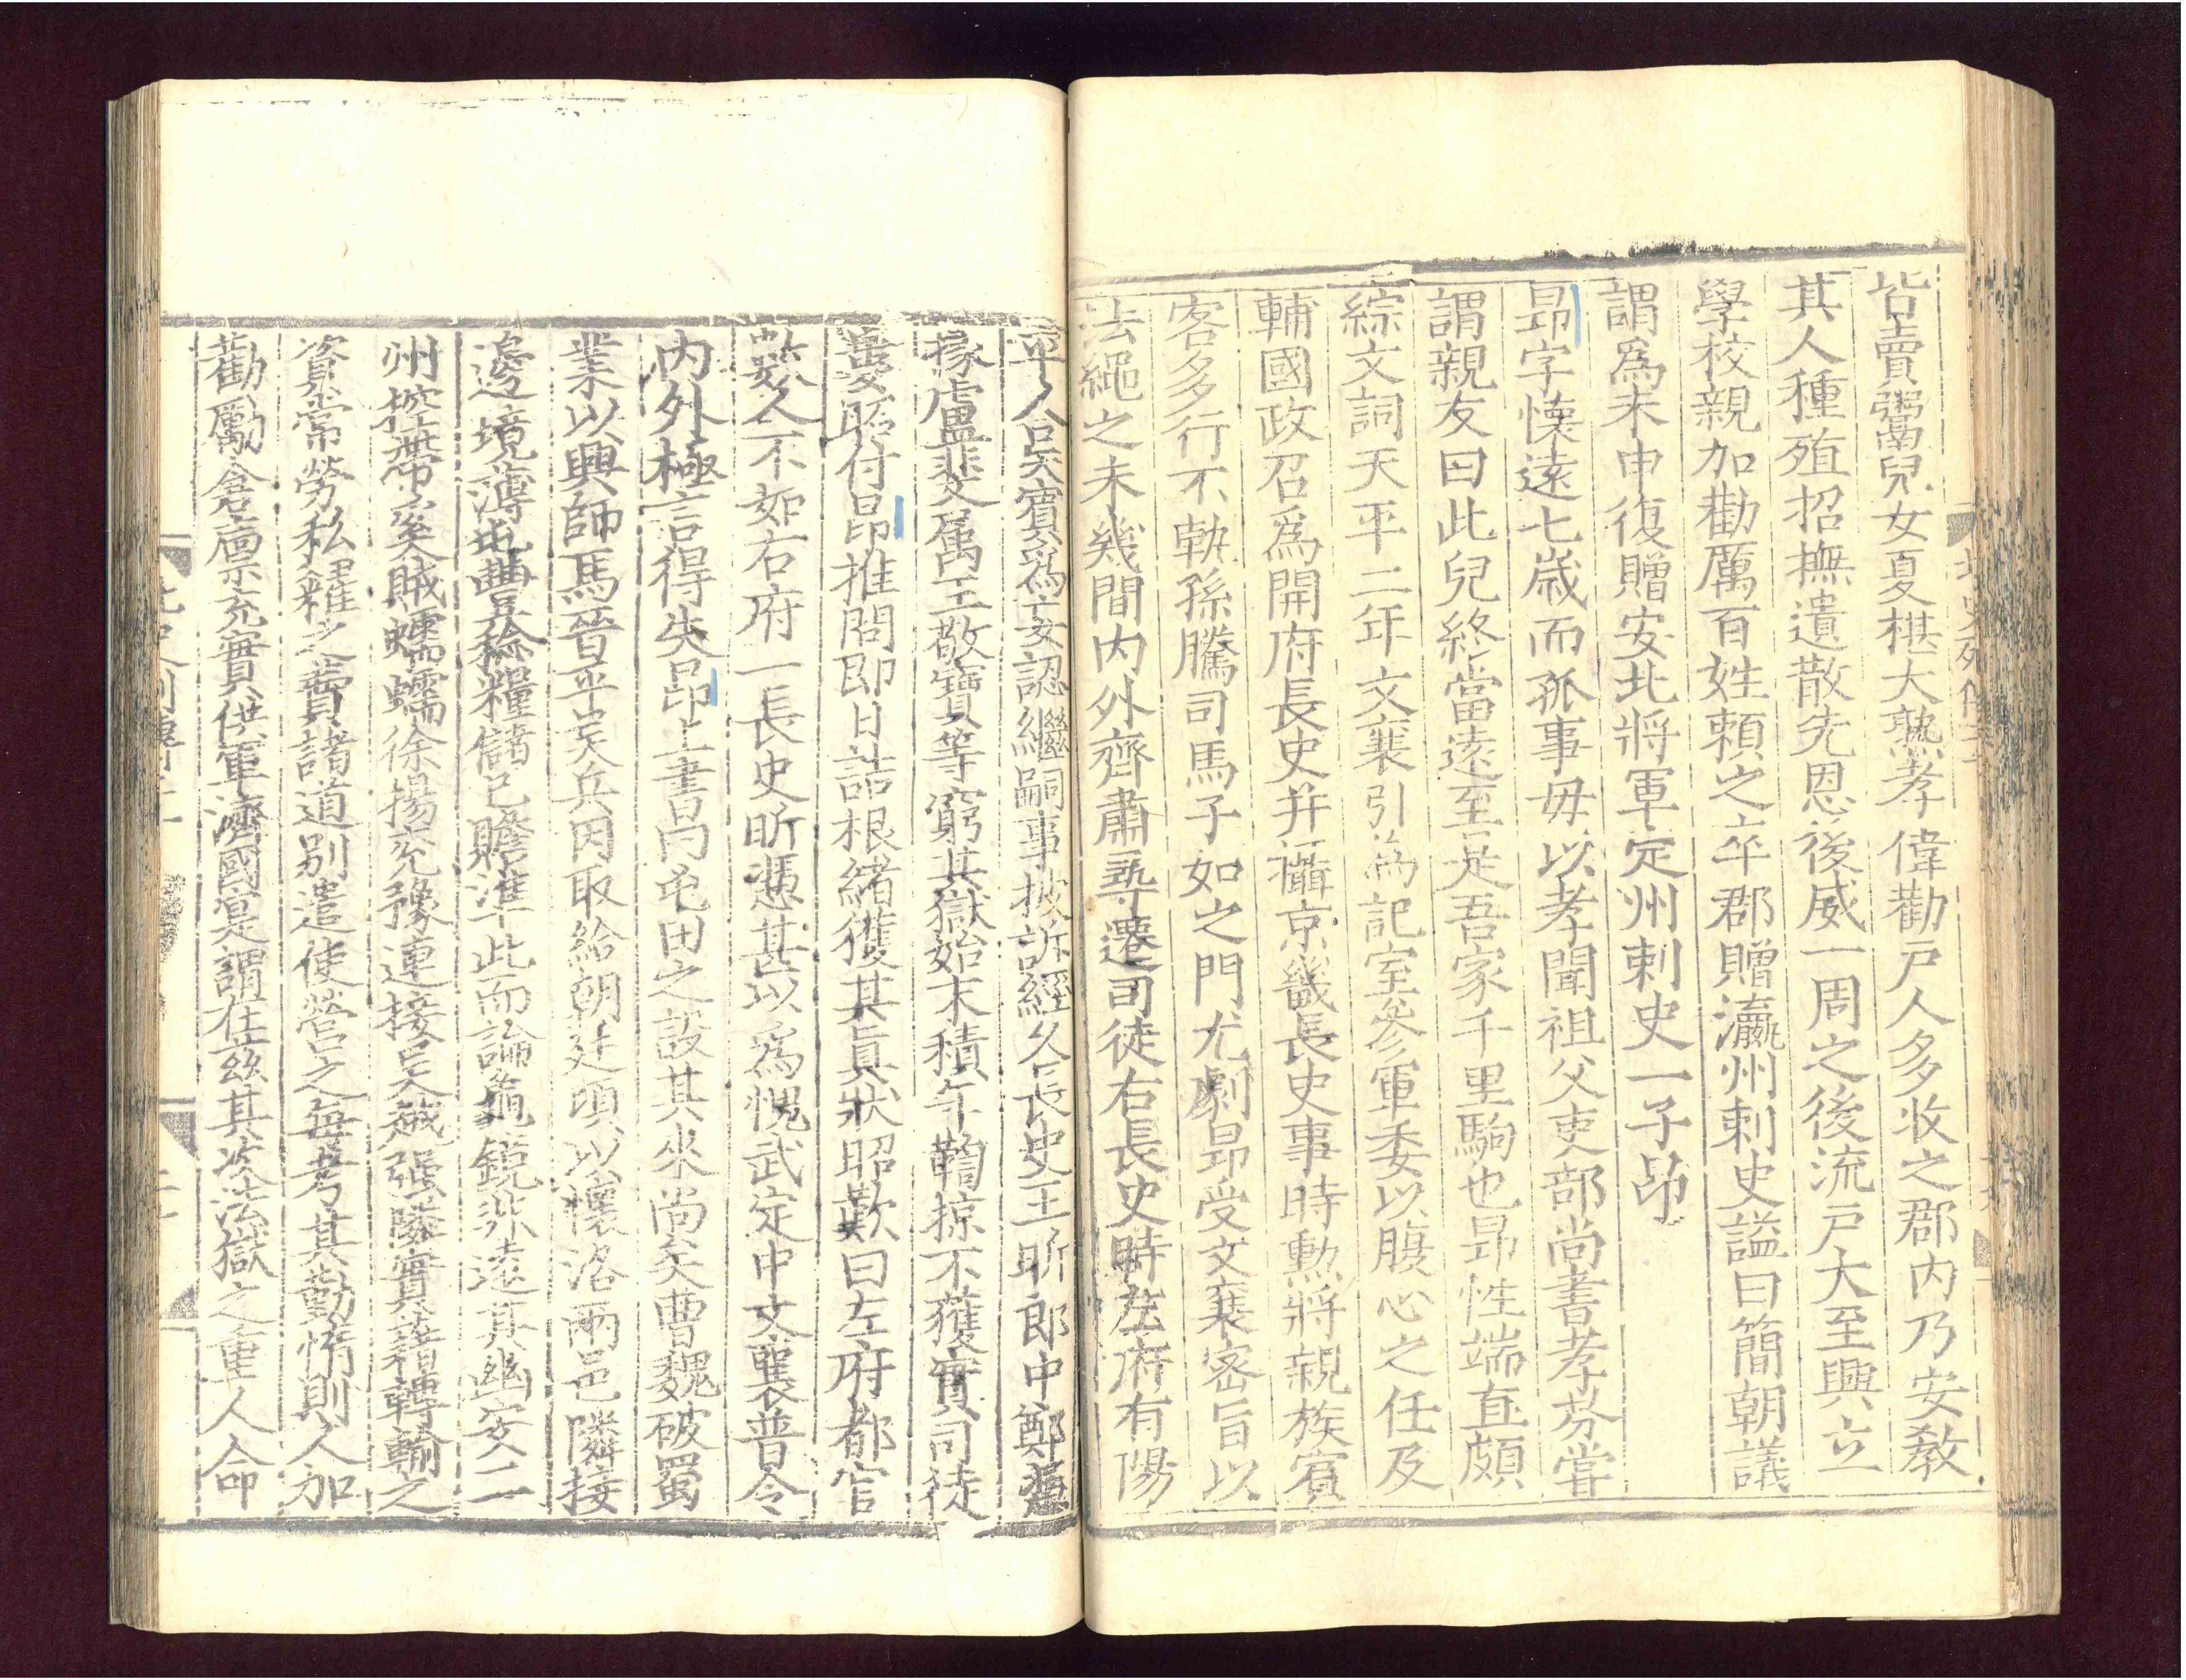 皆賣鬻兒女夏椹大熟孝偉勸戶人多收之郡內乃安教
其人種殖招撫遺散先恩後威一周之後流戶大至興立
學校親加勸厲百姓賴之卒郡贈瀛州刺史謚曰簡朝議
謂爲未申復贈安北將軍定州刺史一子昂
昂字懷遠七歲而孤事母以孝聞祖父吏部尚書孝芬嘗
謂親友曰此兒終當遠至是吾家千里駒也昂性端直頗
綜文詞天平二年文襄引爲記室參軍委以腹心之任及
輔國政召爲開府長史并攝京畿長史事時勳將親族賓
客多行不軌孫騰司馬子如之門尤劇昂受文襄密旨以
法繩之未幾間內外齊肅尋遷司徒右長史時左府有陽
平人吳賓爲妄認繼嗣事披訴經久長史王昕郎中鄭憑
掾盧斐屬王敬寶等窮其獄始末積年鞫掠不獲實司徒
婁昭付昂推問即日詰根緒獲其真狀昭歎曰左府都官
數人不如右府一長史昕憑甚以爲愧武定中文襄普令
內外極言得失昂上書曰屯田之設其來尚矣曹魏破蜀
業以興師馬晉平吳兵因取給朝廷頃以懷洛兩邑隣接
邊境薄屯豊稔糧儲已贍準此而論龜鏡非遠其幽安二
州控帶奚賊蠕蠕徐揚兗豫連接吳越强隣實藉轉輸之
資常勞私糴之費諸道別遣使營之每考其勤惰則人加
勸勵倉廩充實供軍濟國寔謂在茲其次法獄之重人命